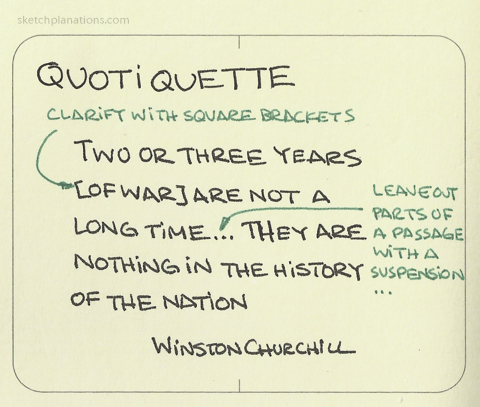 sketchplanations.com
QUOTiQUETTE
CLARIFY WITH SQUARE BRACKETS
TWO OR THREE YEARS
[OF WAR] ARE NOT A
LONG TiME... THEY ARE
NOTHING IN THE HiSTORY
OF THE NATION
LEAVE OUT
PARTS OF
A PASSAGE
WITH A
SUSPENSION
...
WINSTON CHURCHILL